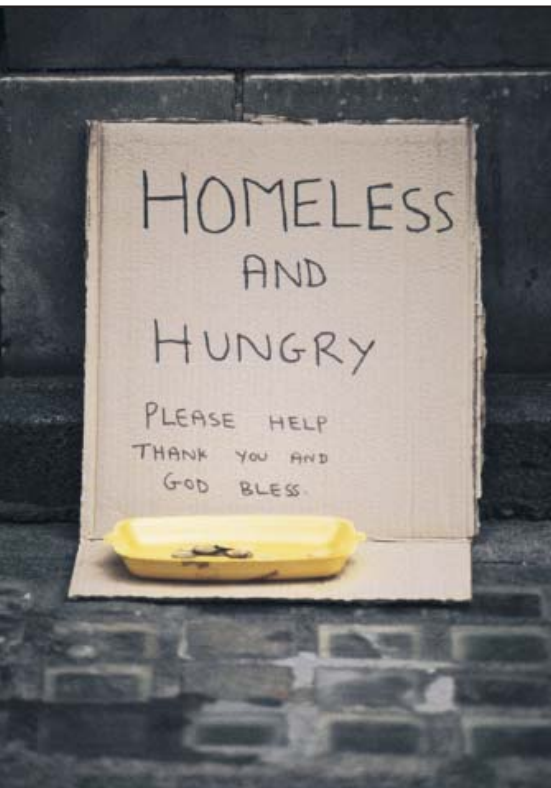 HOMELESS
AND
HUNGRY
PLEASE HELP
THANK YOU AND
GOD BLESS.